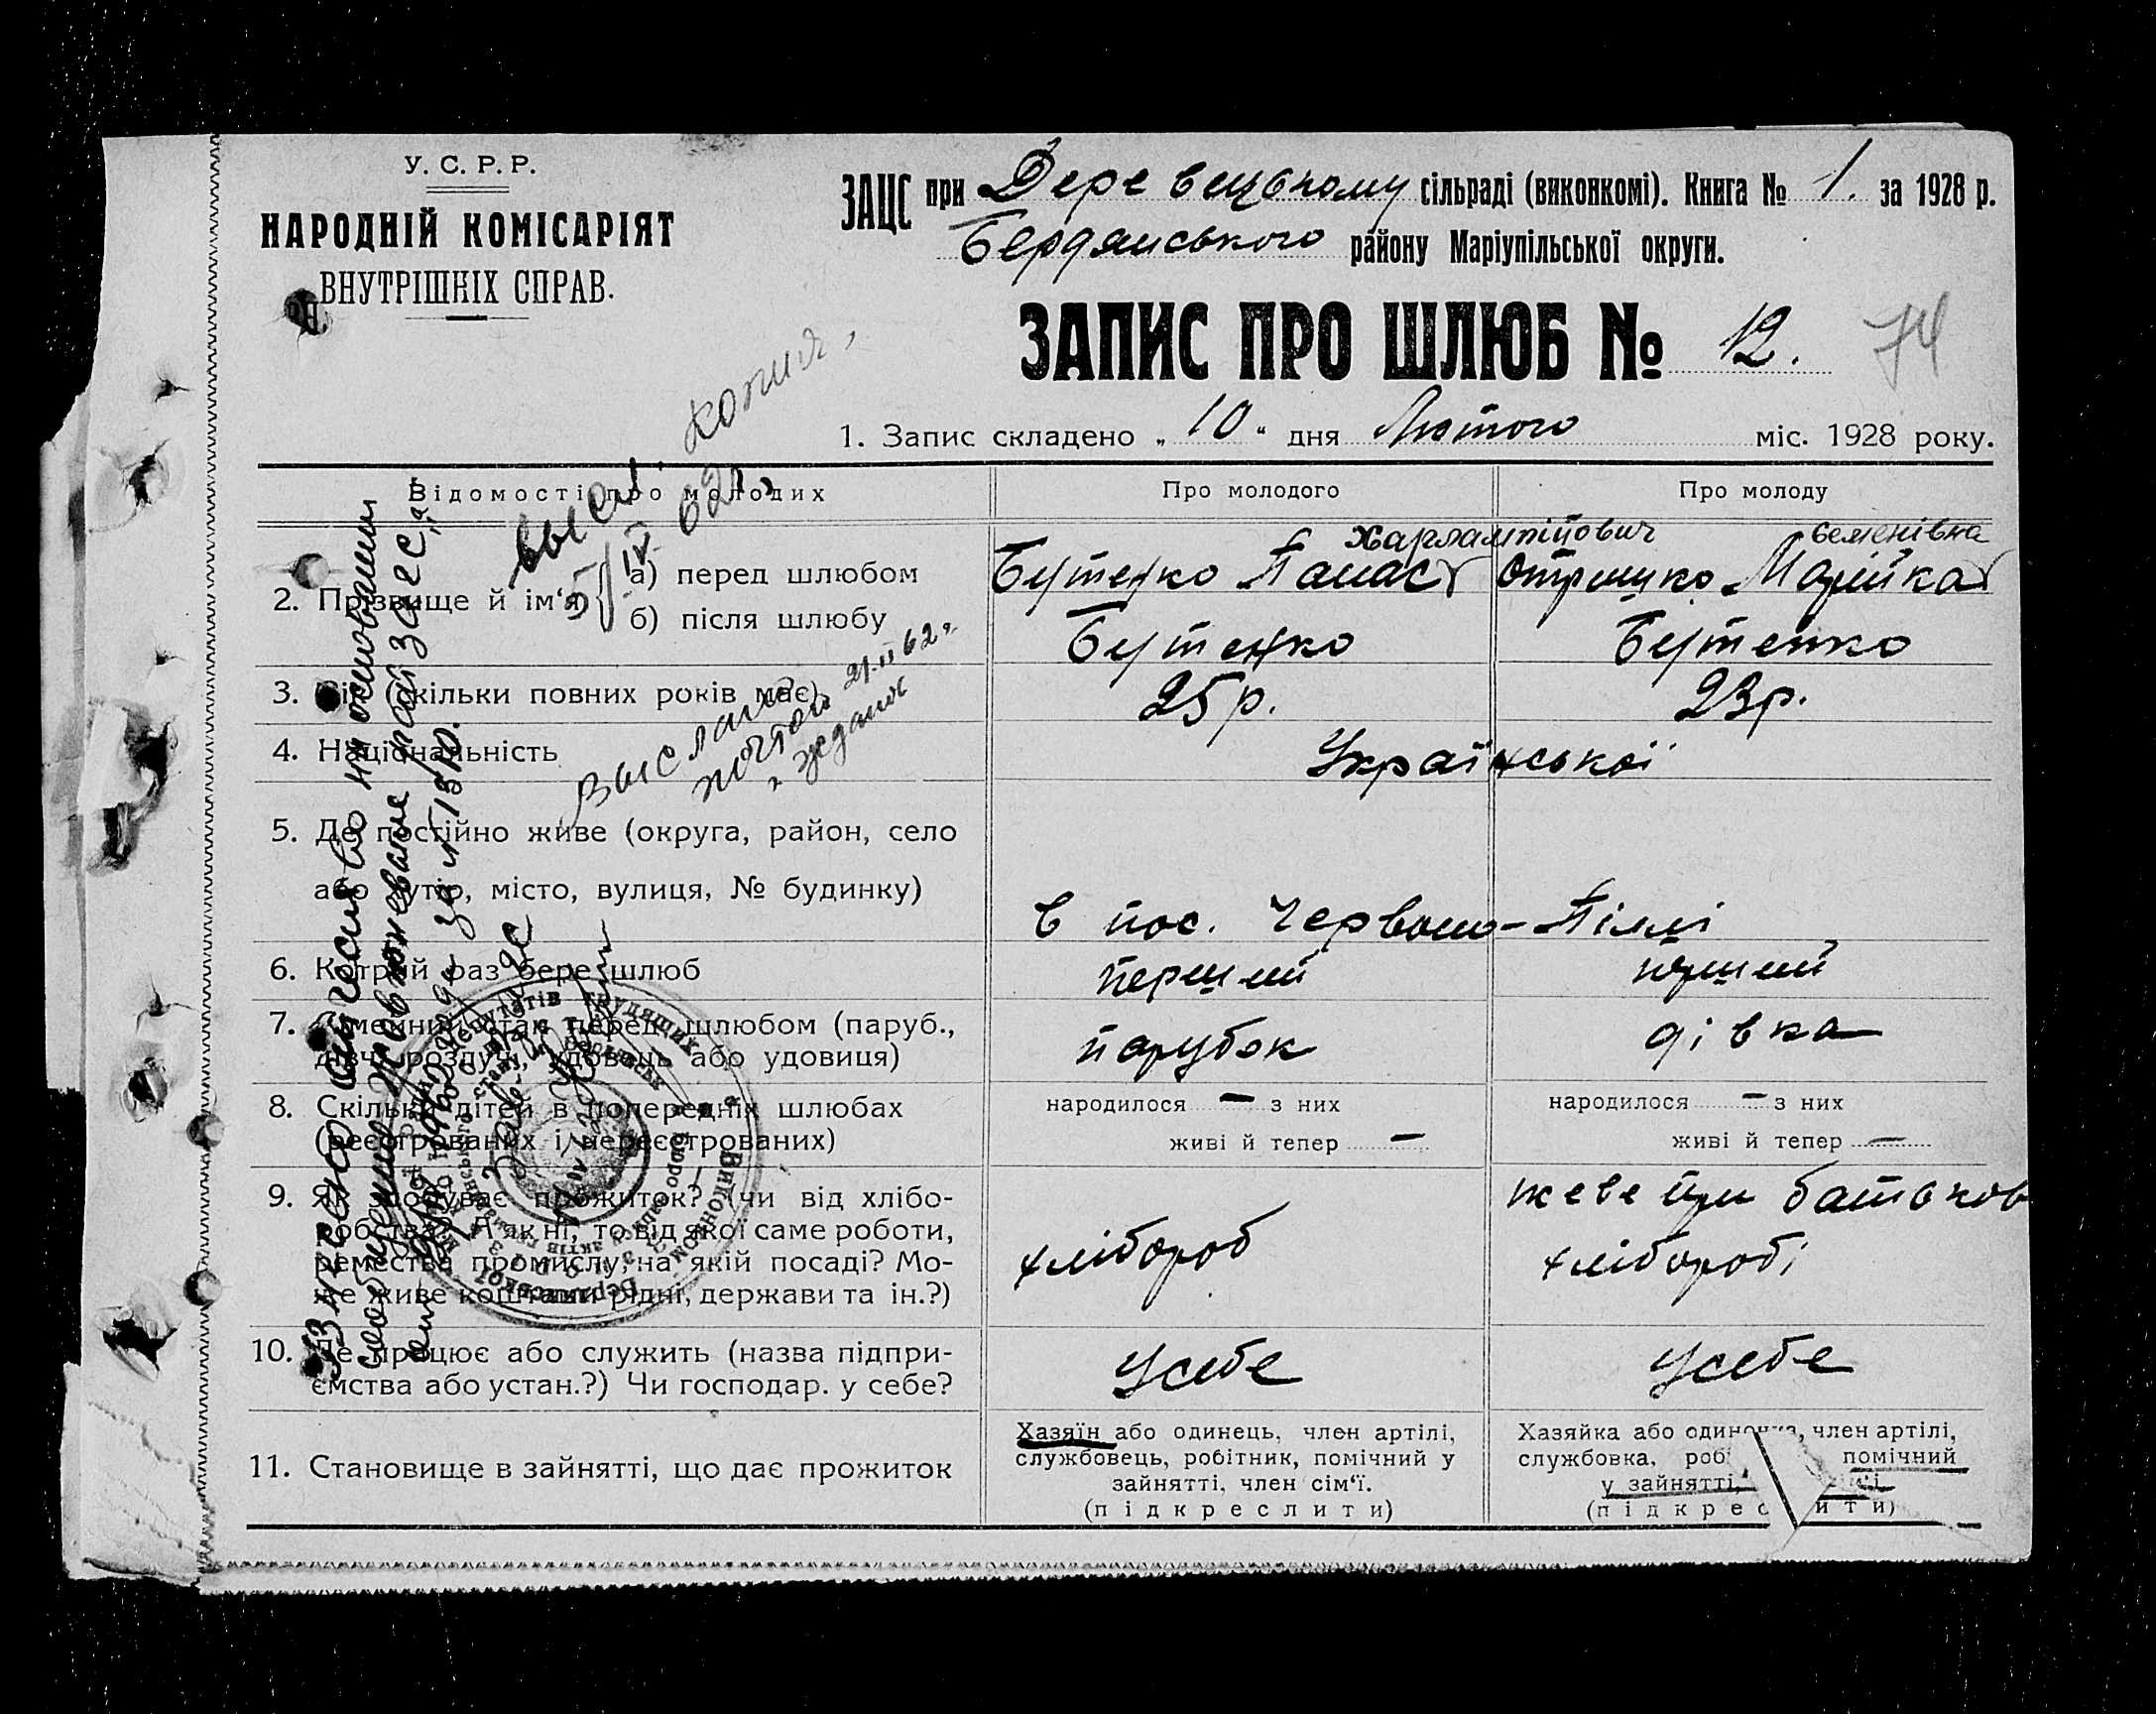 У. С. Р. Р.
НАРОДНІЙ КОМІСАРІЯТ
ВНУТРІШНІХ СПРАВ.
ЗАЦС при Деревецькому сільраді (виконкомі). Книга № 1. за 1928 р.
Бердянського району Маріупільської округи.
ЗАПИС ПРО ШЛЮБ № 12.
74
1. Запис складено „ 10 “ дня Лютого міс. 1928 року.
Відомості про молодих
Про молодого
Про молоду
2. Прізвище й ім‘я
а) перед шлюбом
Харлампійович
Бутенко Панас
Семенівна
Отришко Марійка
б) після шлюбу
Бутенко
Бутенко
3. Вік (скільки повних років має)
25 р.
23 р.
4. Національність
Української
5. Де постійно живе (округа, район, село
або хутір, місто, вулиця, № будинку)
в пос. Червоно-Піллі
6. Котрий раз бере шлюб
перший
перший
7. Сімейний стан перед шлюбом (паруб.,
дівч., розлуч., удовець або удовиця)
парубок
дівка
8. Скільки дітей в попередніх шлюбах
(реєстрованих і нереєстрованих)
народилося — з них
живі й тепер —
народилося — з них
живі й тепер —
9. Як добуває прожиток? (чи від хлібо-
робства? А як ні, то від якої саме роботи,
ремества промислу, на якій посаді? Мо-
же живе коштами рідні, держави та ін.?)
хлібороб
жеве при батьков
хліборобі
10. Де працює або служить (назва підпри-
ємства або устан.?) Чи господар. у себе?
Усебе
Усебе
11. Становище в зайнятті, що дає прожиток
Хазяїн або одинець, член артілі,
службовець, робітник, помічний у
зайнятті, член сім‘ї.
(підкреслити)
Хазяйка або одиночка, член артілі,
службовка, роб помічний
у зайнятті, сім‘ї
(підкреслити)
высл. копия
5 IV 62 г.
Выслано
почтой 21.II 62 г.
г. Жданов
на основании
райЗАГС
за № 1310.
Виконком
депутатів трудящих
Бердянської